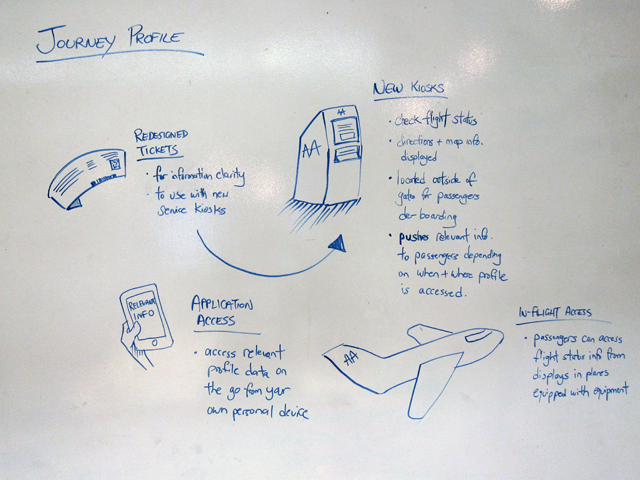 JOURNEY PROFILE
REDESIGNED
TICKETS
• for information clarity
• to use with new
service kiosks
AA
AA
NEW KIOSKS
• check flight status
• directions + map info.
displayed
• located outside of
gates for passengers
de-boarding
• pushes relevant info.
to passengers depending
on when + where profile
is accessed.
RELEVANT
INFO
APPLICATION
ACCESS
• access relevant
profile data on
the go from your
own personal device
AA
IN-FLIGHT ACCESS
• passengers can access
flight status info from
displays in planes
equipped with equipment